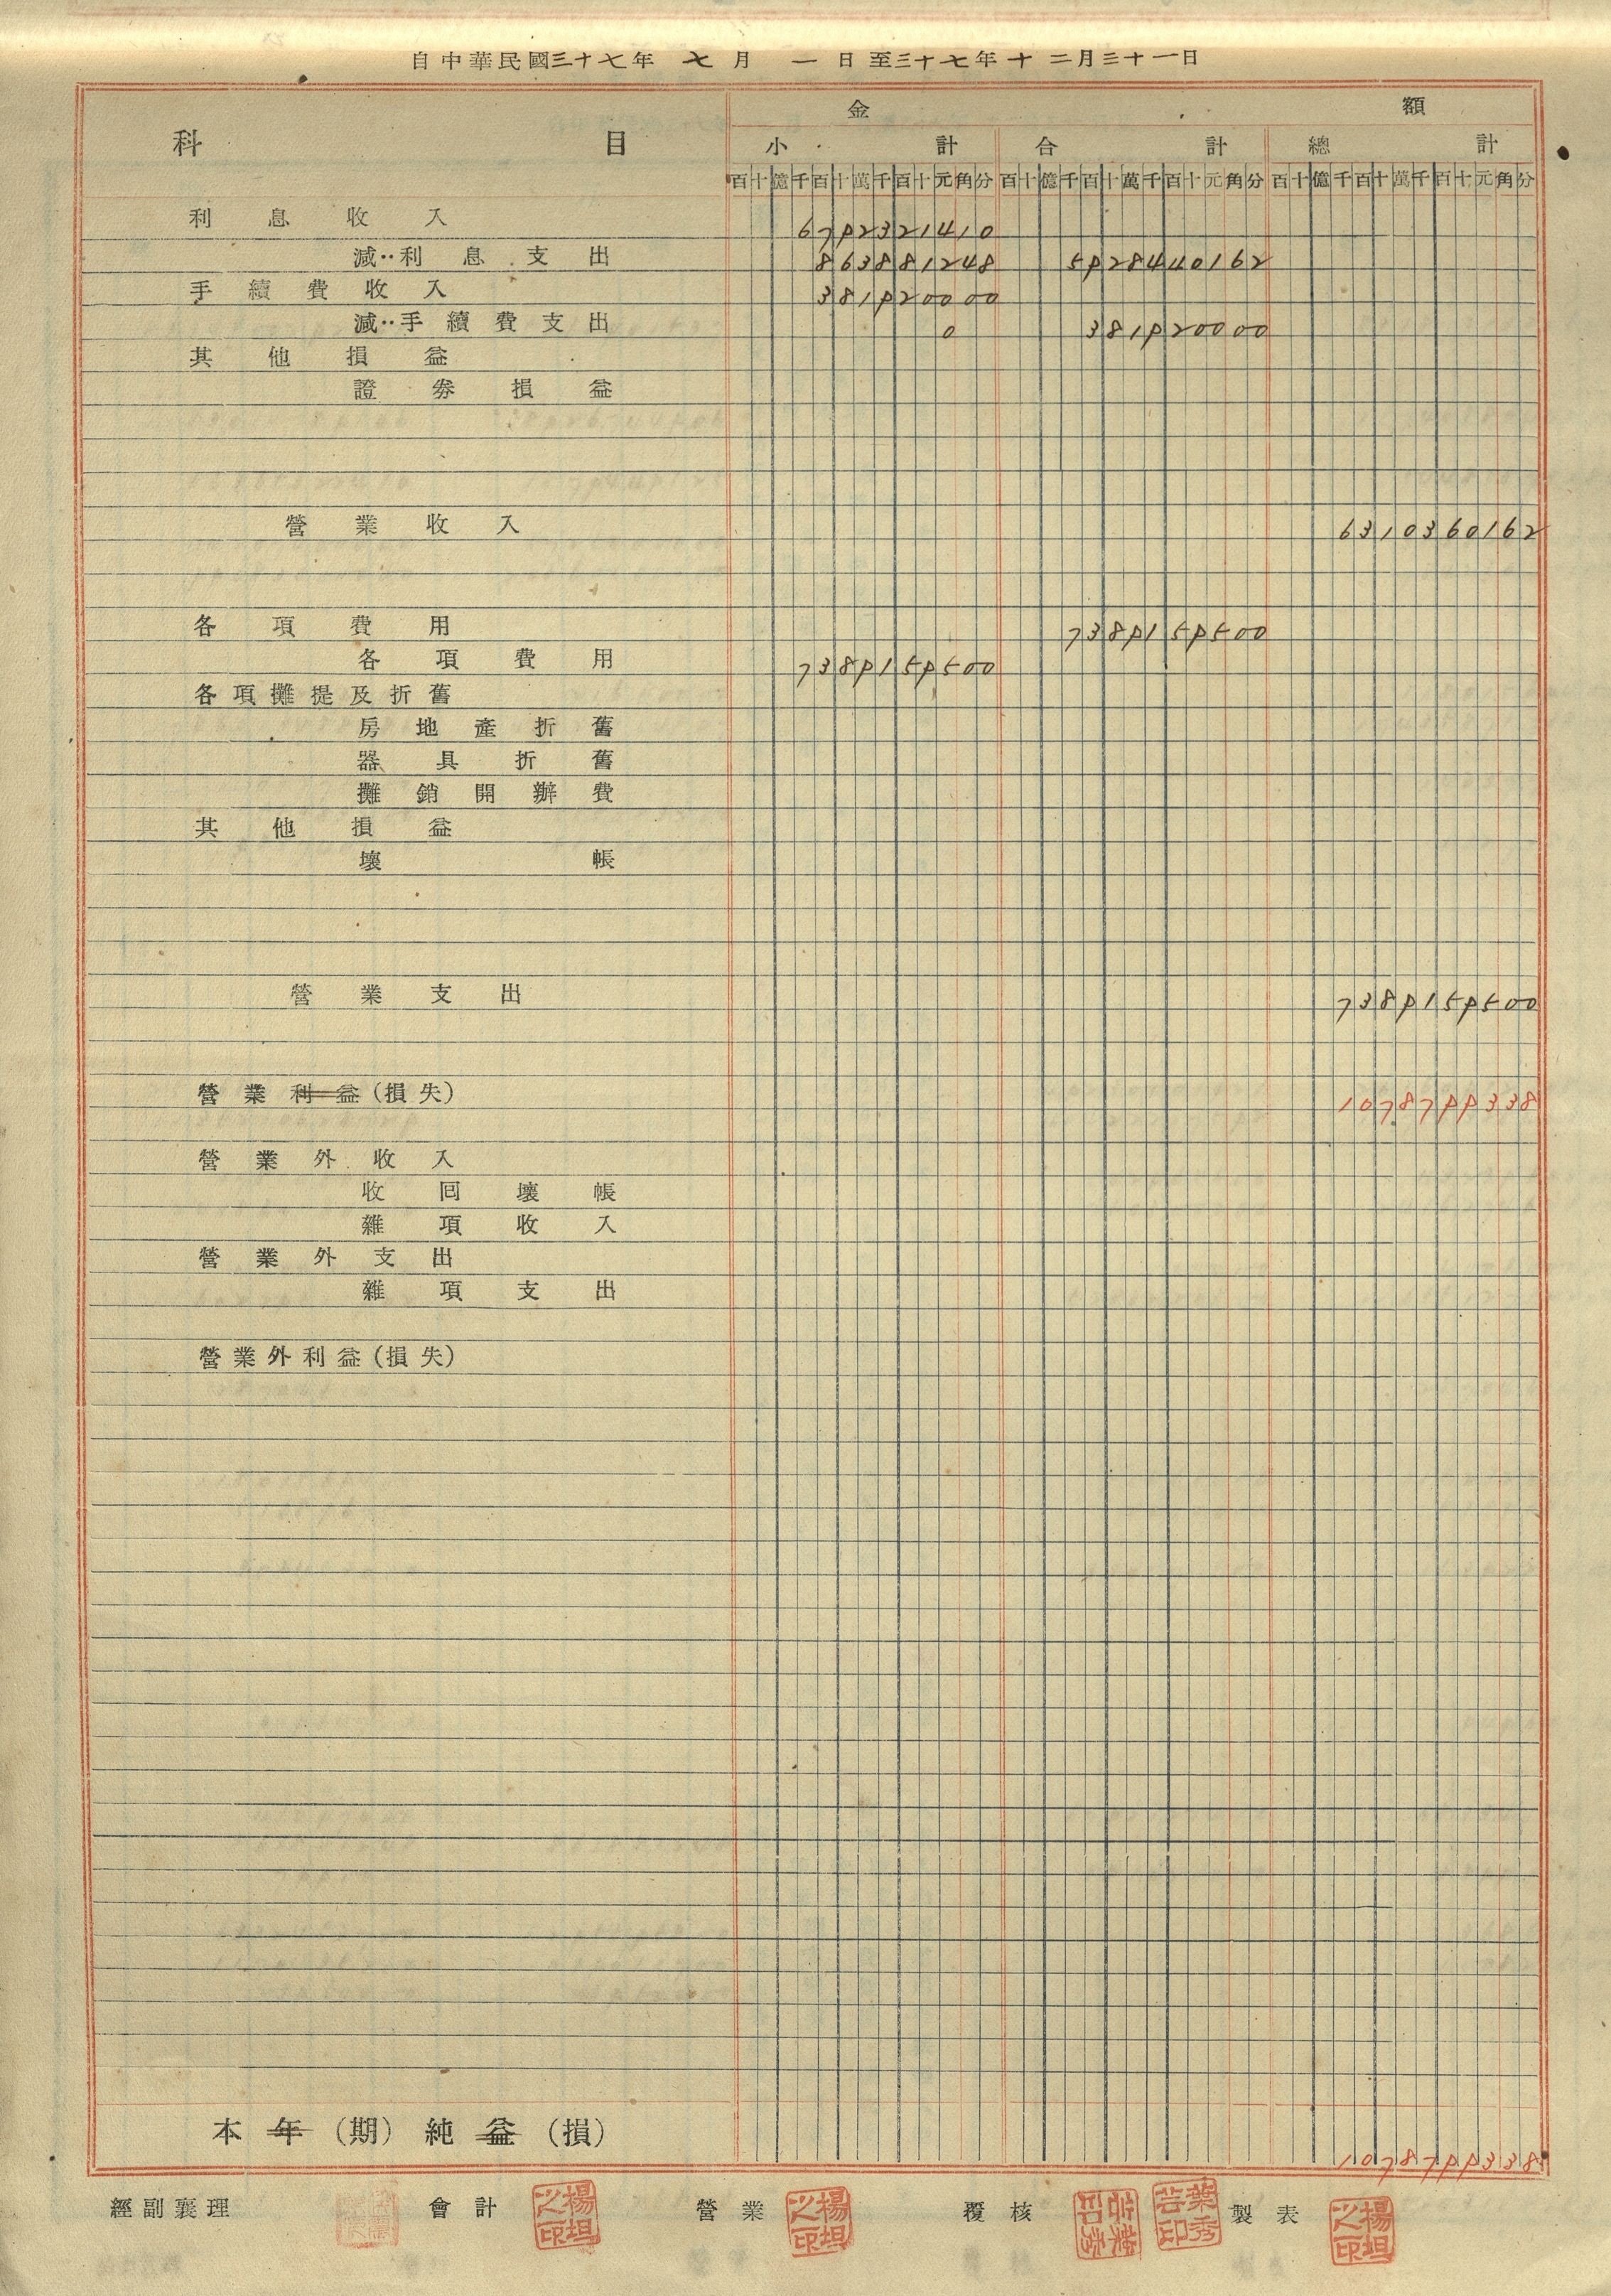 自中華民國三十七年 七月 一日至三十七年十二月三十一日
科目 金額
小計 合計 總計
百十億千百十萬千百十元角分 百十億千百十萬千百十元角分 百十億千百十萬千百十元角分
利息收入 6792321410
減：利息支出 863881248 5928440162
手續費收入 381920000
減：手續費支出 0 381920000
其他損益
證券損益
營業收入 6310360162
各項費用 7389159500
各項費用 7389159500
各項攤提及折舊
房地產折舊
器具折舊
攤銷開辦費
其他損益
壞帳
營業支出 7389159500
營業利益(損失) 1078799338
營業外收入
收回壞帳
雜項收入
營業外支出
雜項支出
營業外利益(損失)
本年(期)純益(損) 1078799338
經副襄理 會計 楊坦之印 營業 楊坦之印 覆核 製表 楊坦之印